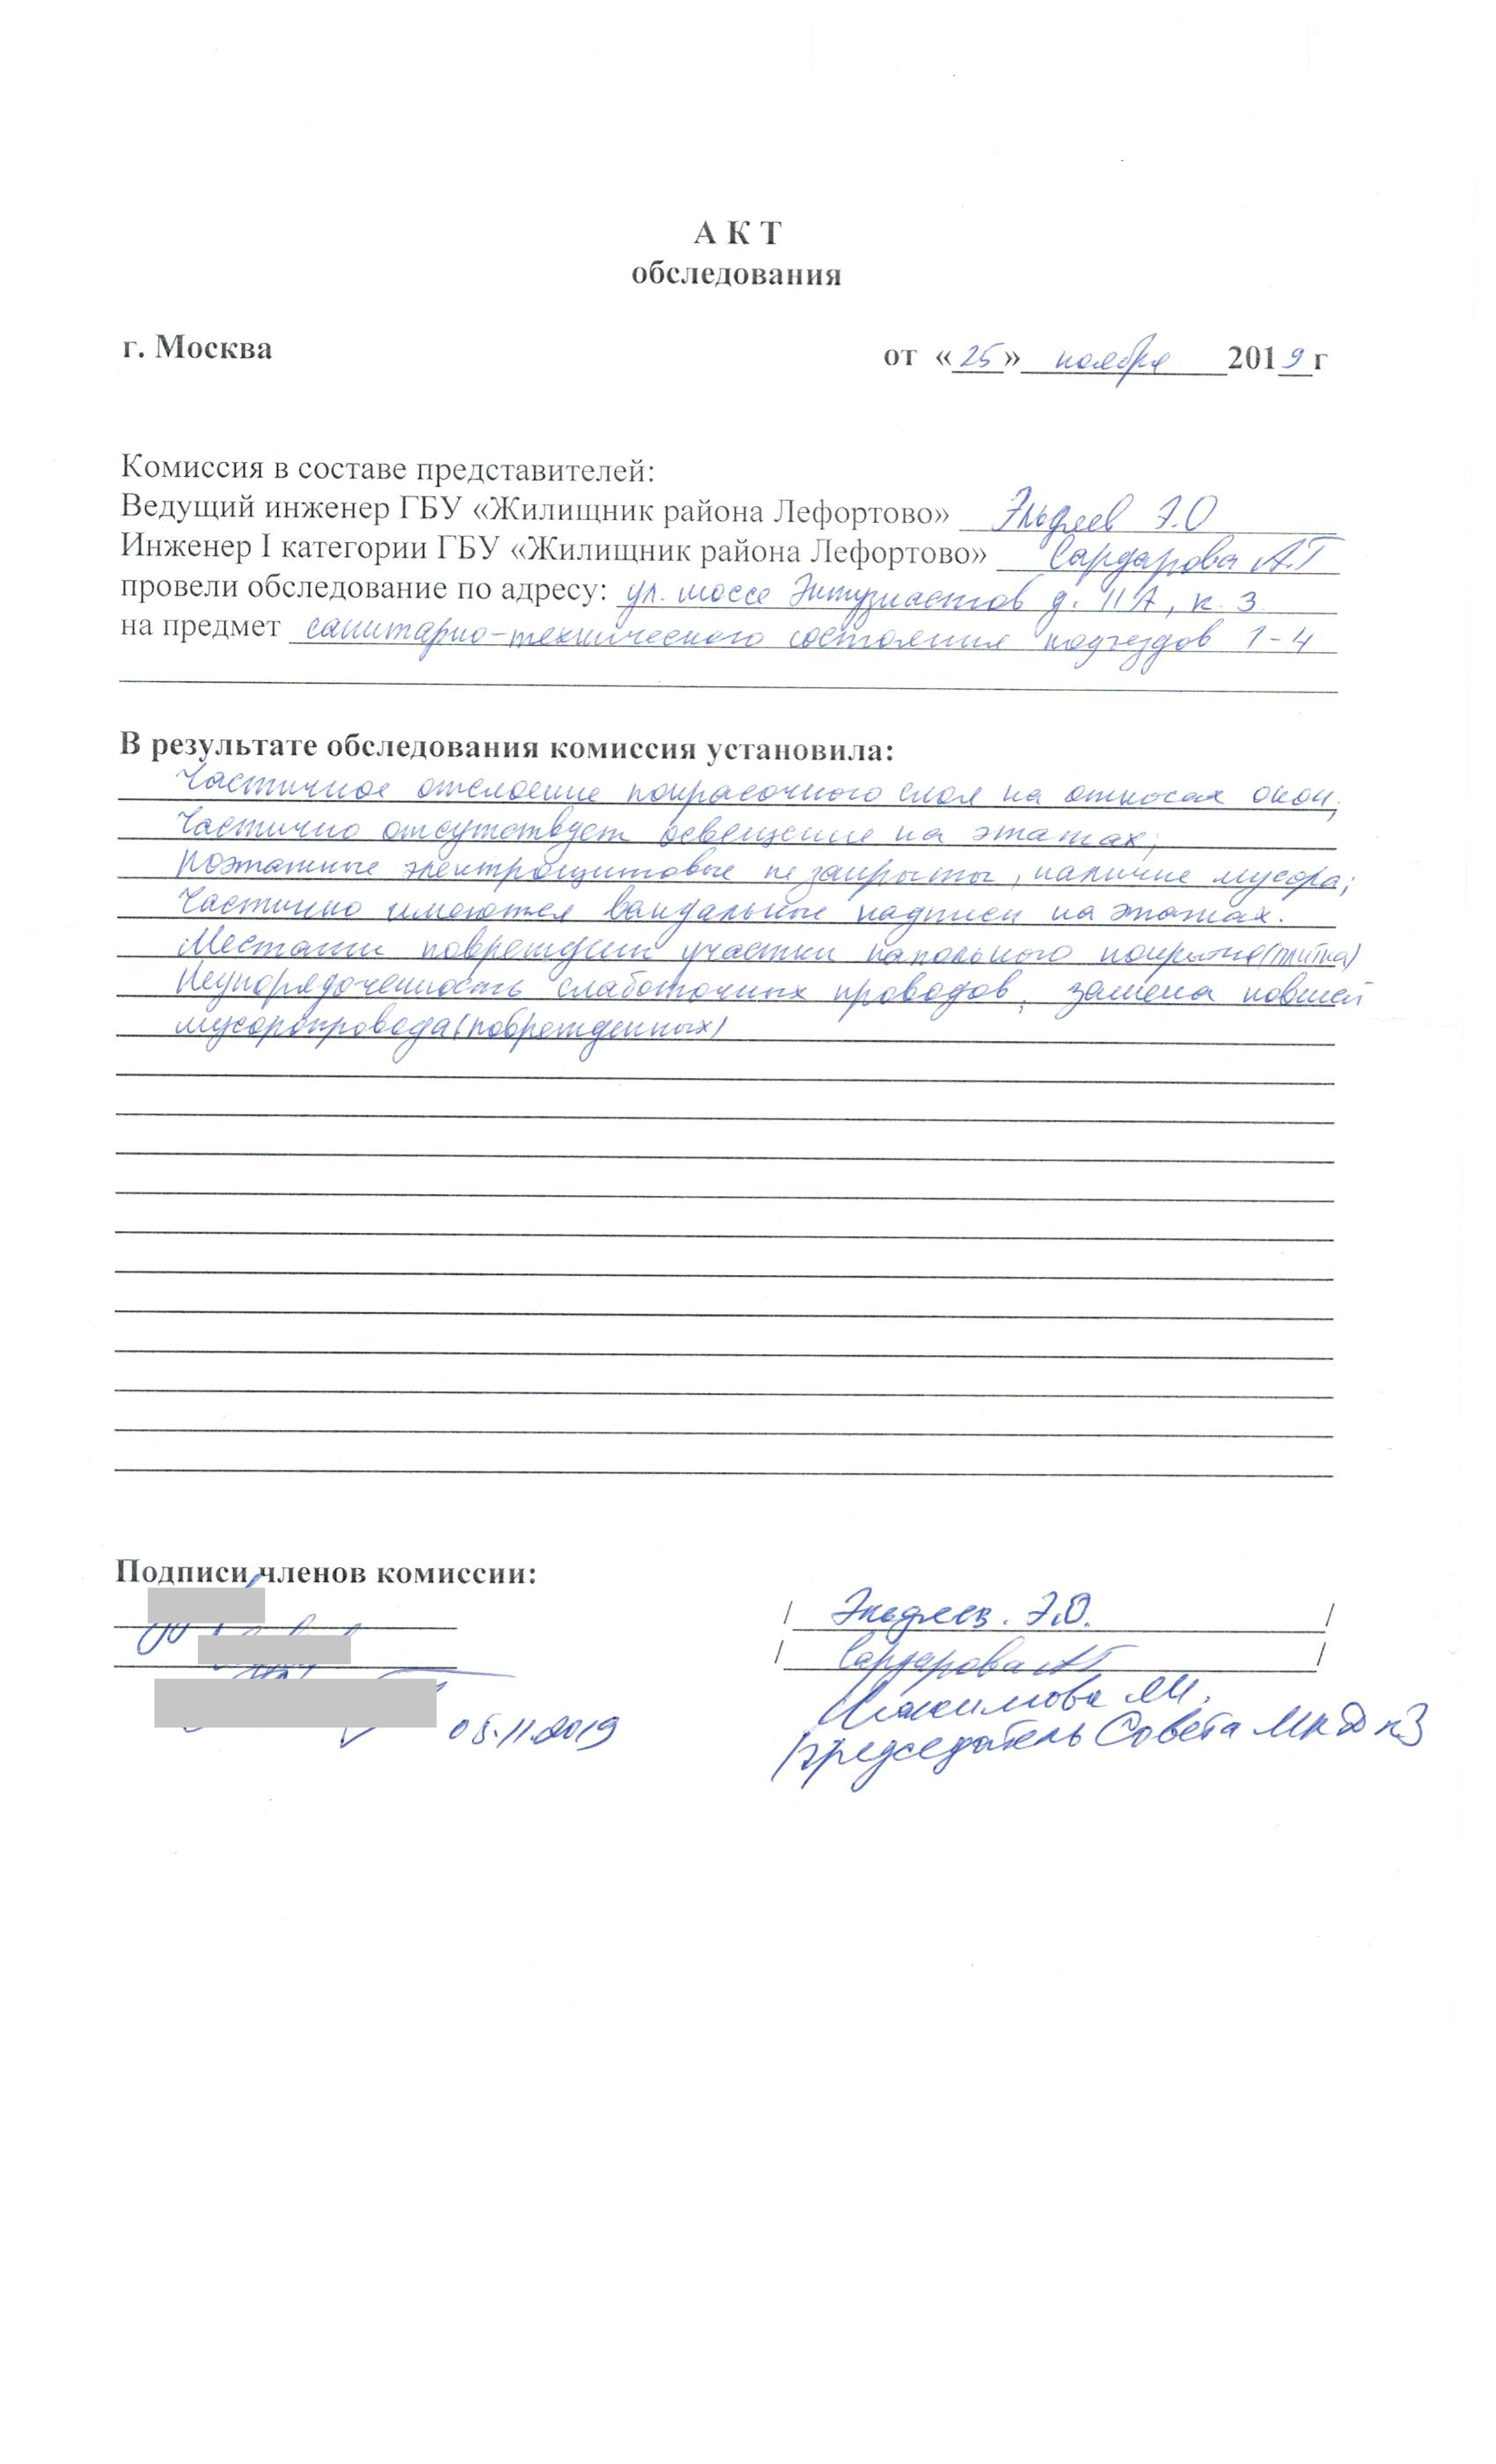 А К Т
обследования
г. Москва
от «25» ноября 2019 г
Комиссия в составе представителей:
Ведущий инженер ГБУ «Жилищник района Лефортово» Э.О
Инженер I категории ГБУ «Жилищник района Лефортово» Сардарова А.Г
провели обследование по адресу: ул. шоссе Энтузиастов д. 11А, к. 3
на предмет санитарно-технического состояния подъездов 1-4
В результате обследования комиссия установила:
Частичное отслоение покрасочного слоя на откосах окон;
Частично отсутствует освещение на этажах;
Поэтажные электрощитовые не закрыты, наличие мусора;
Частично имеются вандальные надписи на этажах.
Местами поврежден участки напольного покрытие (плитка)
Неупорядоченность слаботочных проводов, замена ковшей
мусоропровода (поврежденных)
Подписи членов комиссии:
/ Э.О. /
/ Сардарова АГ /
05.11.2019
председатель Совета МКД к3